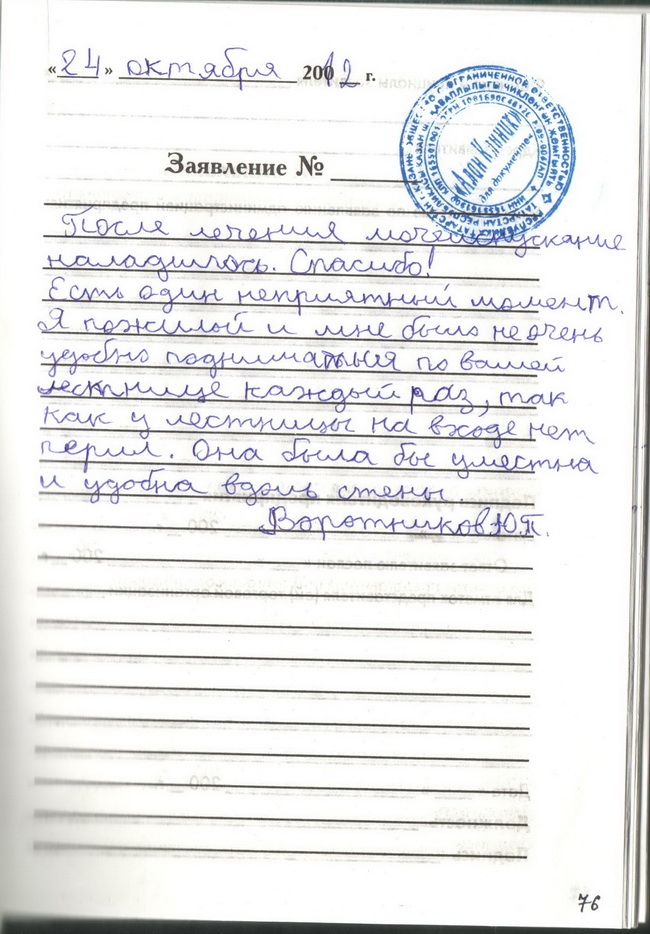 «24» октября 20012 г.
Заявление №
После лечения мочеиспускание
наладилось. Спасибо!
Есть один неприятный момент.
Я пожилой и мне было не очень
удобно подниматься по вашей
лестнице каждый раз, так
как у лестницы на входе нет
перил. Она была бы уместна
и удобна вдоль стены.
Воротников Ю.П.
«Адон Клиник»
для документов
76